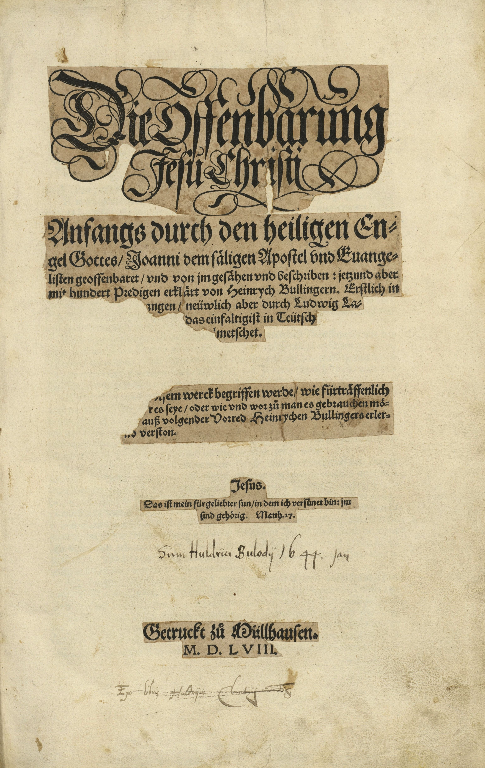 Die Offenbarung
Jesu Christi
Anfangs durch den heiligen En-
gel Gottes / Joanni dem säligen Apostel vnd Euange-
listen geoffenbaret / vnd von jm gesähen vnd beschriben : jetzund aber
mit hundert Predigen erklärt von Heinrych Bullingern. Erstlich in
angen / neüwlich aber durch Ludwig La-
das einfaltigist in Teütsch
metschet.
sem werck begriffen werde / wie fürträffenlich
es seye / oder wie vnd worzů man es gebrauchen mö-
auß volgender Vorred Heinrychen Bullingers erler-
verston.
Jesus.
Das ist mein fürgeliebter sun / in dem ich versůnet bin: jm
sind gehörig. Matth. 17.
Sum Huldrici 1644. Jan
Getruckt zů Müllhausen.
M. D. LVIII.